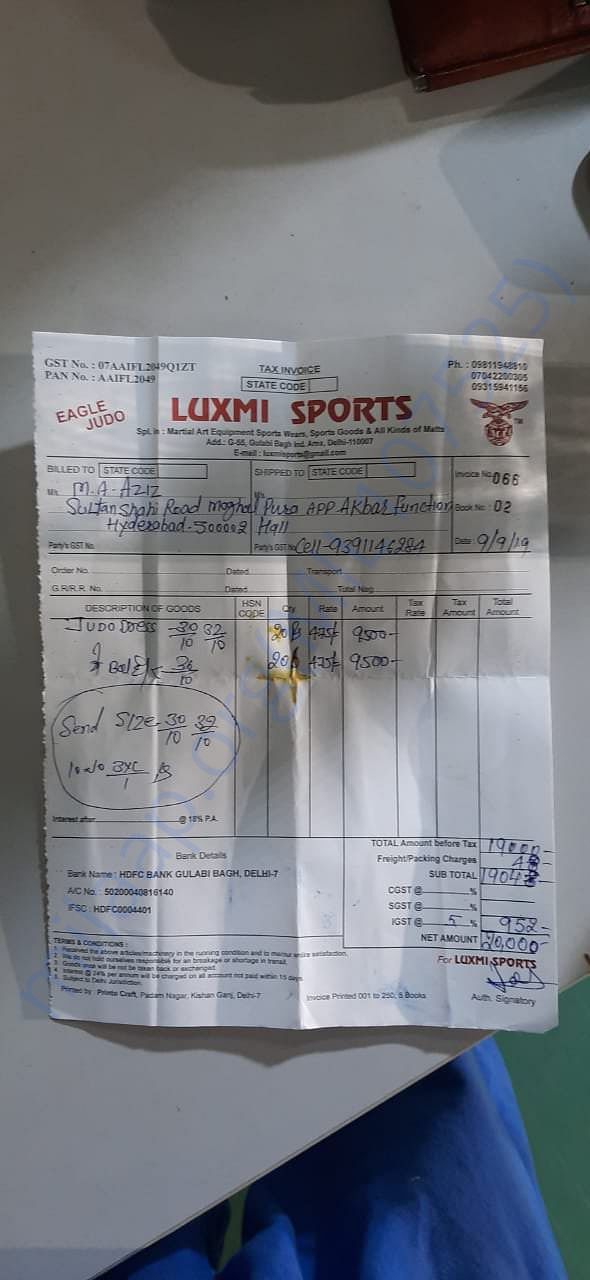 GST No. : 07AAIFL2049Q1ZT
PAN No. : AAIFL2049
TAX INVOICE
STATE CODE
Ph. : 09811948810
07042200305
09315941156
EAGLE JUDO
LUXMI SPORTS
TM
Spl. in : Martial Art Equipment Sports Wears, Sports Goods & All Kinds of Matts
Add.: G-55, Gulabi Bagh Ind. Area, Delhi-110007
E-mail : luxmisports@gmail.com
BILLED TO STATE CODE
SHIPPED TO STATE CODE
Invoice No. 066
M/s. M.A. AZIZ
M/s.
Sultan Shahi Road moghal Pura APP Akbar Function
Book No. : 02
Hyderabad-500002 Hall
Party's GST No.
Party's GST No. Cell-9391146284
Date : 9/9/19
Order No. Dated Transport
G.R/R.R. No. Dated Total Nag
DESCRIPTION OF GOODS HSN CODE Qty Rate Amount Tax Rate Tax Amount Total Amount
JUDO Dress 30/10 32/10 20 475/- 9500-
20 475/- 9500-
Send Size 30/10 32/10
3XL/1
Interest after @ 18% P.A.
TOTAL Amount before Tax 19000-
Bank Details
Freight/Packing Charges 48-
Bank Name : HDFC BANK GULABI BAGH, DELHI-7
SUB TOTAL 19048-
A/C No. : 50200040816140
CGST @ %
IFSC : HDFC0004401
SGST @ %
IGST @ 5 % 952-
NET AMOUNT 20,000-
TERMS & CONDITIONS :
1. Received the above articles/machinery in the running condition and to me/our entire satisfaction.
2. We do not hold ourselves responsible for an breakage or shortage in transit.
3. Goods once will be not be taken back or exchanged.
4. Interest @ 24% per annum will be charged on all account not paid within 15 days
5. Subject to Delhi Jurisdiction.
For LUXMI SPORTS
Printed by : Printo Craft, Padam Nagar, Kishan Ganj, Delhi-7
Invoice Printed 001 to 250, 5 Books
Auth. Signatory